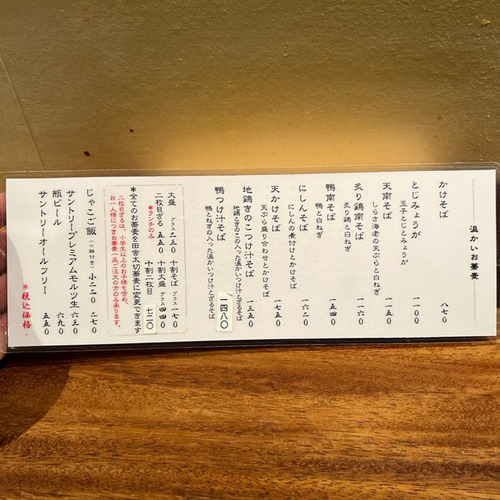 温かいお蕎麦
かけそば 八七〇
とじみょうが 一一〇〇
玉子とじとみょうが
天南そば 一一五〇
しらさ海老の天ぷらと白ねぎ
炙り鶏南そば 一一六〇
炙り鶏と白ねぎ
鴨南そば 一三〇〇
鴨と白ねぎ
にしんそば 一六二〇
にしんの煮付けとかけそば
天かけそば 一六五〇
天ぷら盛り合わせとかけそば
地鶏きのこつけ汁そば 一三五〇
地鶏ときのこの入った温かいつけ汁とざるそば
鴨つけ汁そば 一四八〇
鴨とねぎの入った温かいつけ汁とざるそば
大盛 プラス二三〇 十割そば プラス一七〇
二枚目ざる 五五〇 十割大盛 プラス四四〇
*ランチのみ 十割二枚目 七二〇
*全てのお蕎麦を田舎太切蕎麦に変更できます
二枚目ざるは、小学生以上のお子様も含め、
お一人様につきお蕎麦一品ご注文の方のみ承ります。
じゃこご飯 (小鉢付き) 小二二〇 二七〇
サントリープレミアムモルツ生 六三〇
瓶ビール 六九〇
サントリーオールフリー 五五〇
*税込価格